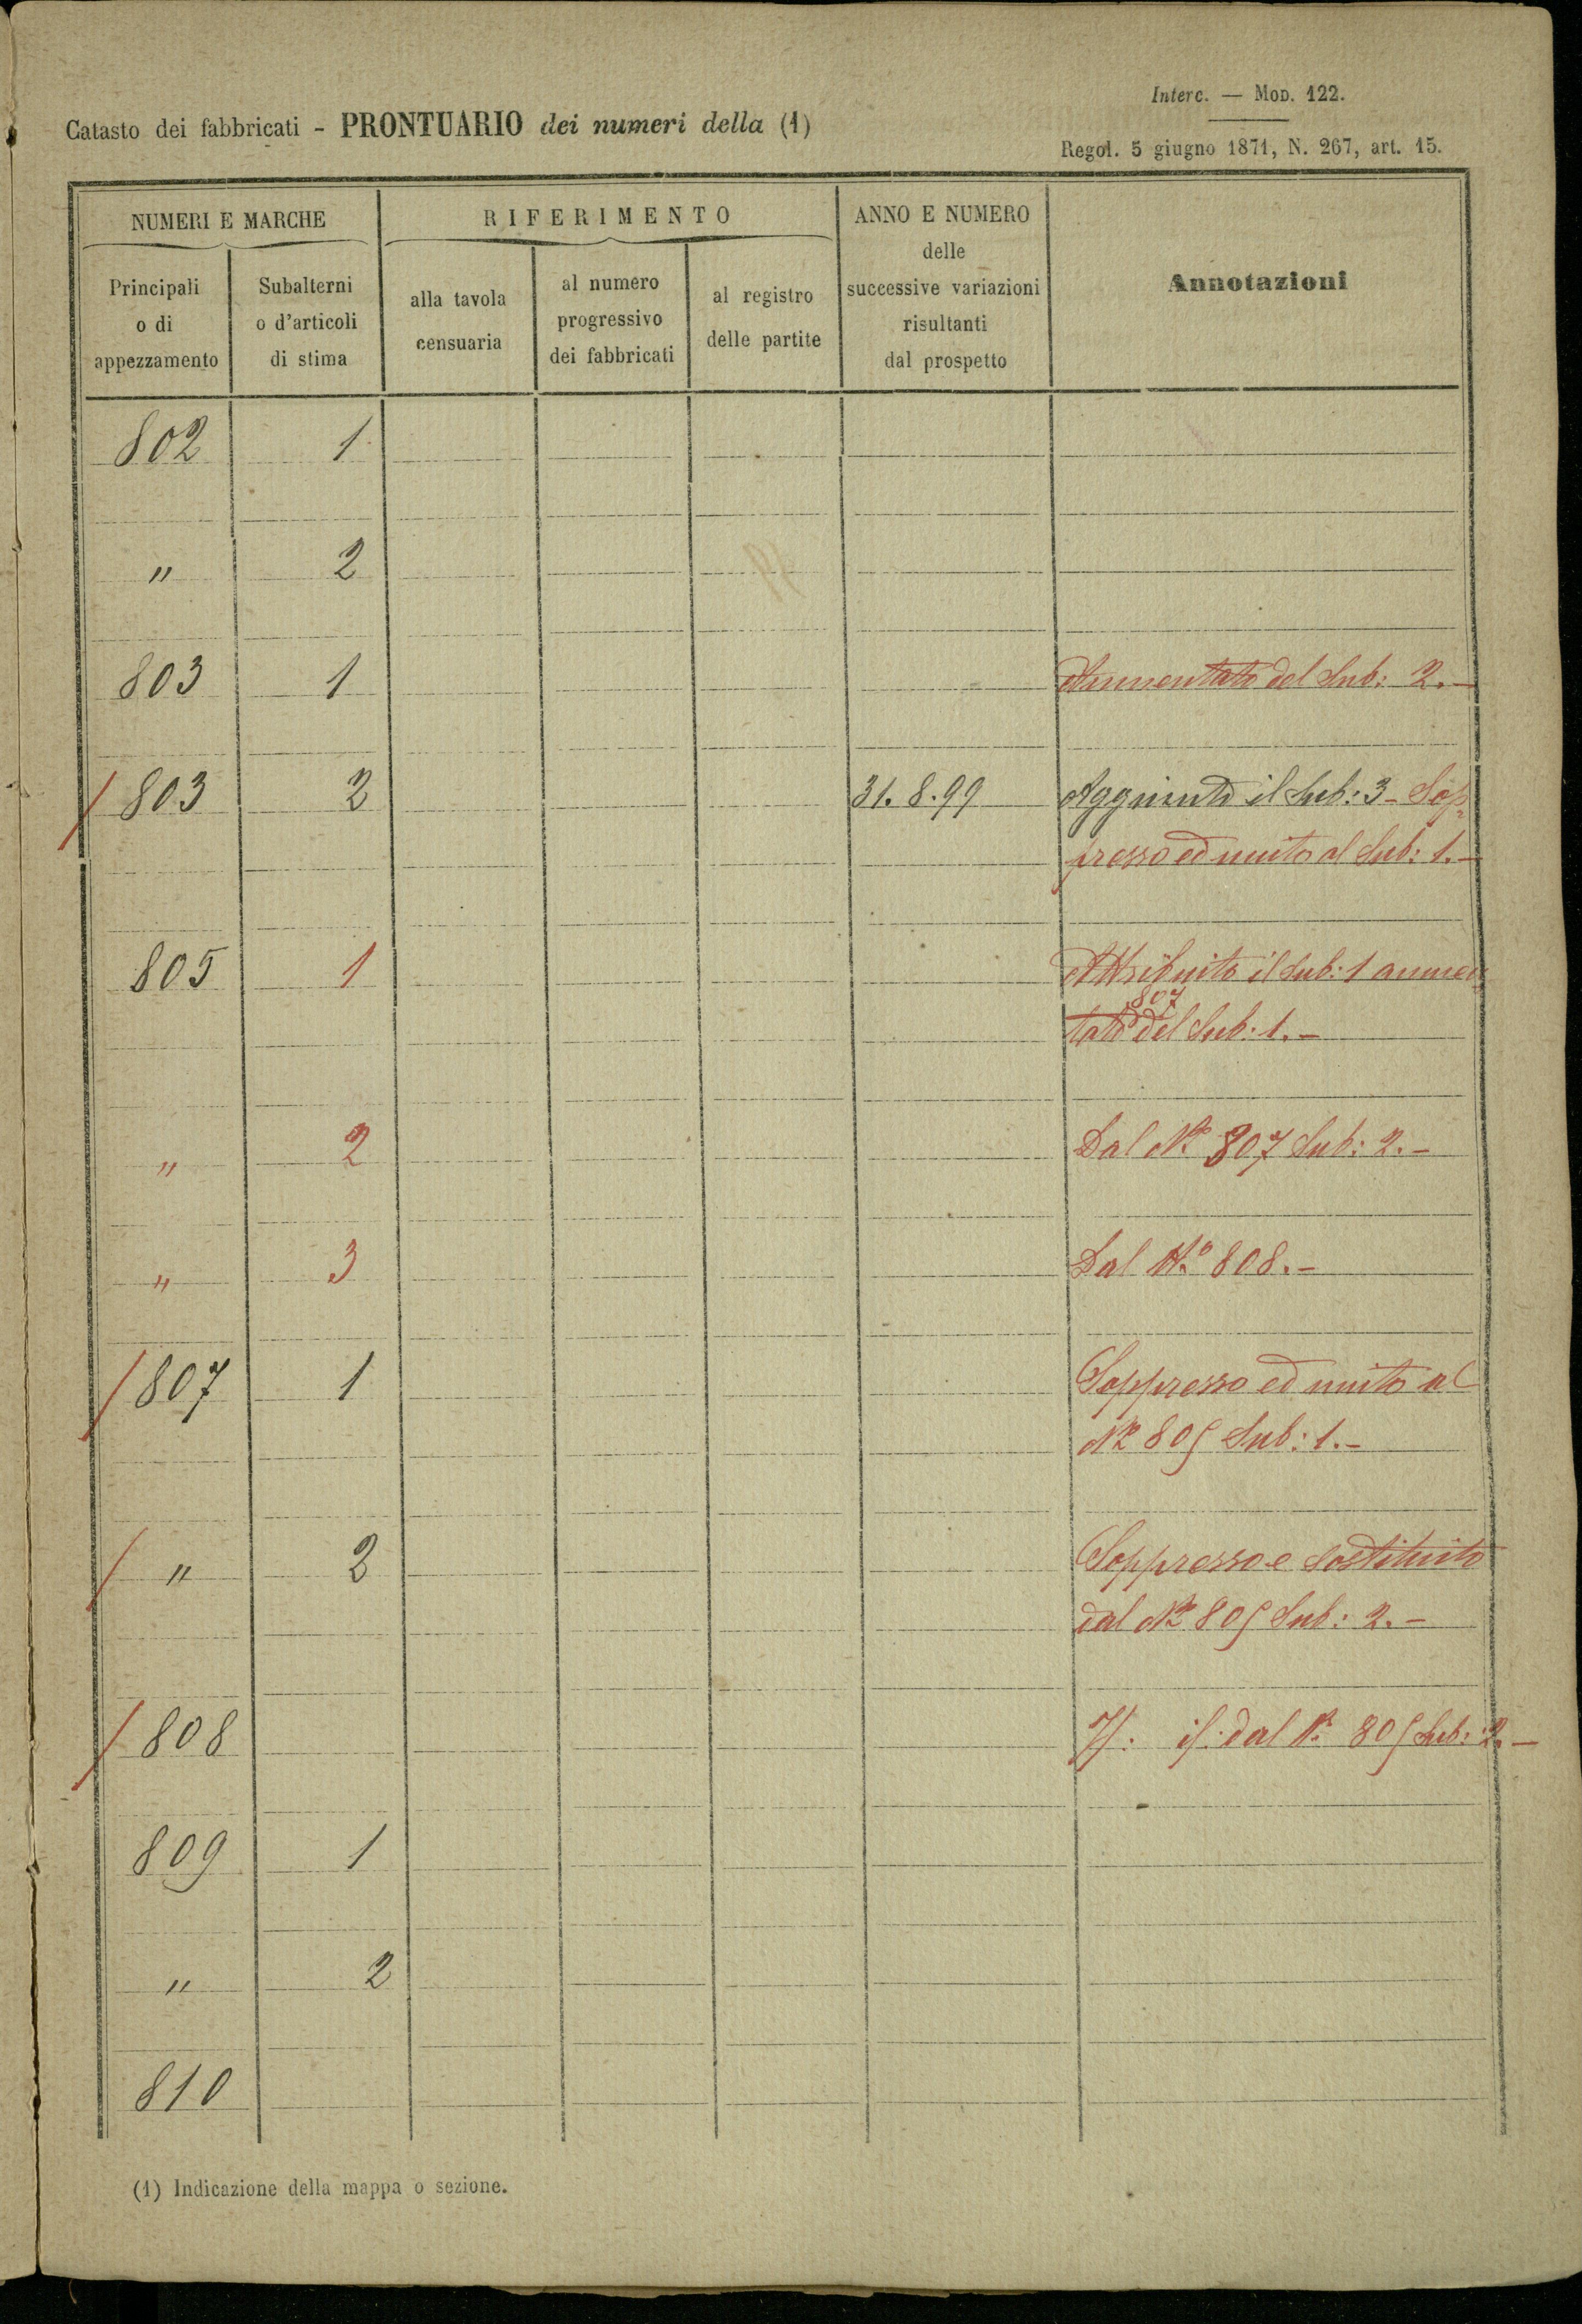 Interc. — Mod. 122.
Catasto dei fabbricati - PRONTUARIO dei numeri della (1)
Regol. 5 giugno 1871, N. 267, art. 15.
NUMERI E MARCHE
RIFERIMENTO
ANNO E NUMERO
delle
successive variazioni
risultanti
dal prospetto
Annotazioni
Principali
o di
appezzamento
Subalterni
o d'articoli
di stima
alla tavola
censuaria
al numero
progressivo
dei fabbricati
al registro
delle partite
802 1
" 2
803 1 Aumentato del Sub: 2.-
/ 803 2 31.8.99 Aggiunto il Sub: 3 - Sop
presso ed unito al Sub: 1.-
805 1 Attribuito il Sub: 1 aumen
807
tato del Sub: 1.-
" 2 Dal No. 807 Sub: 2.-
" 3 Dal No. 808.-
/ 807 1 Soppresso ed unito al
No 805 Sub: 1.-
/ " 2 Soppresso e sostituito
dal No 805 Sub: 2.-
/ 808 dal N. 805 Sub: 2.-
809 1
" 2
810
(1) Indicazione della mappa o sezione.